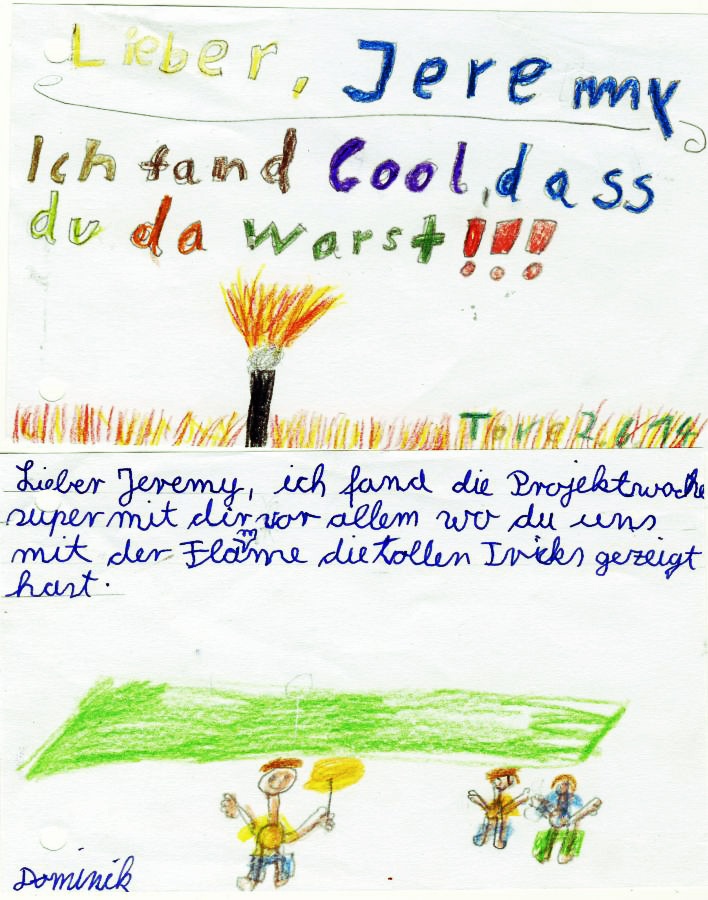 Lieber, Jeremy
Ich fand Cool, dass
du da warst!!!
Lieber Jeremy, ich fand die Projektwoche
super mit dir vor allem wo du uns
mit der Flamme die tollen Tricks gezeigt
hast.
Dominik